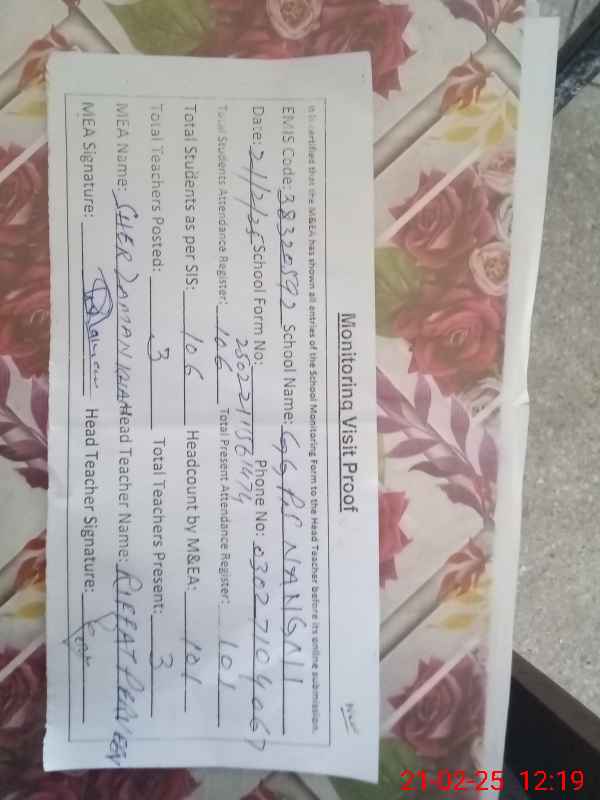 Monitoring Visit Proof
It is certified that the M&EA has shown all entries of the School Monitoring Form to the Head Teacher before its online submission.
EMIS Code: 38320592 School Name: GGPS NANGNI
Date: 21/2/25 School Form No: 2502211561474 Phone No: 03027104067
Total Students Attendance Register: 106 Total Present Attendance Register: 101
Total Students as per SIS: 106 Headcount by M&EA: 101
Total Teachers Posted: 3 Total Teachers Present: 3
MEA Name: SHER ZAMAN Head Teacher Name: RIFFAT PERVEEN
MEA Signature: Head Teacher Signature:
21-02-25 12:19